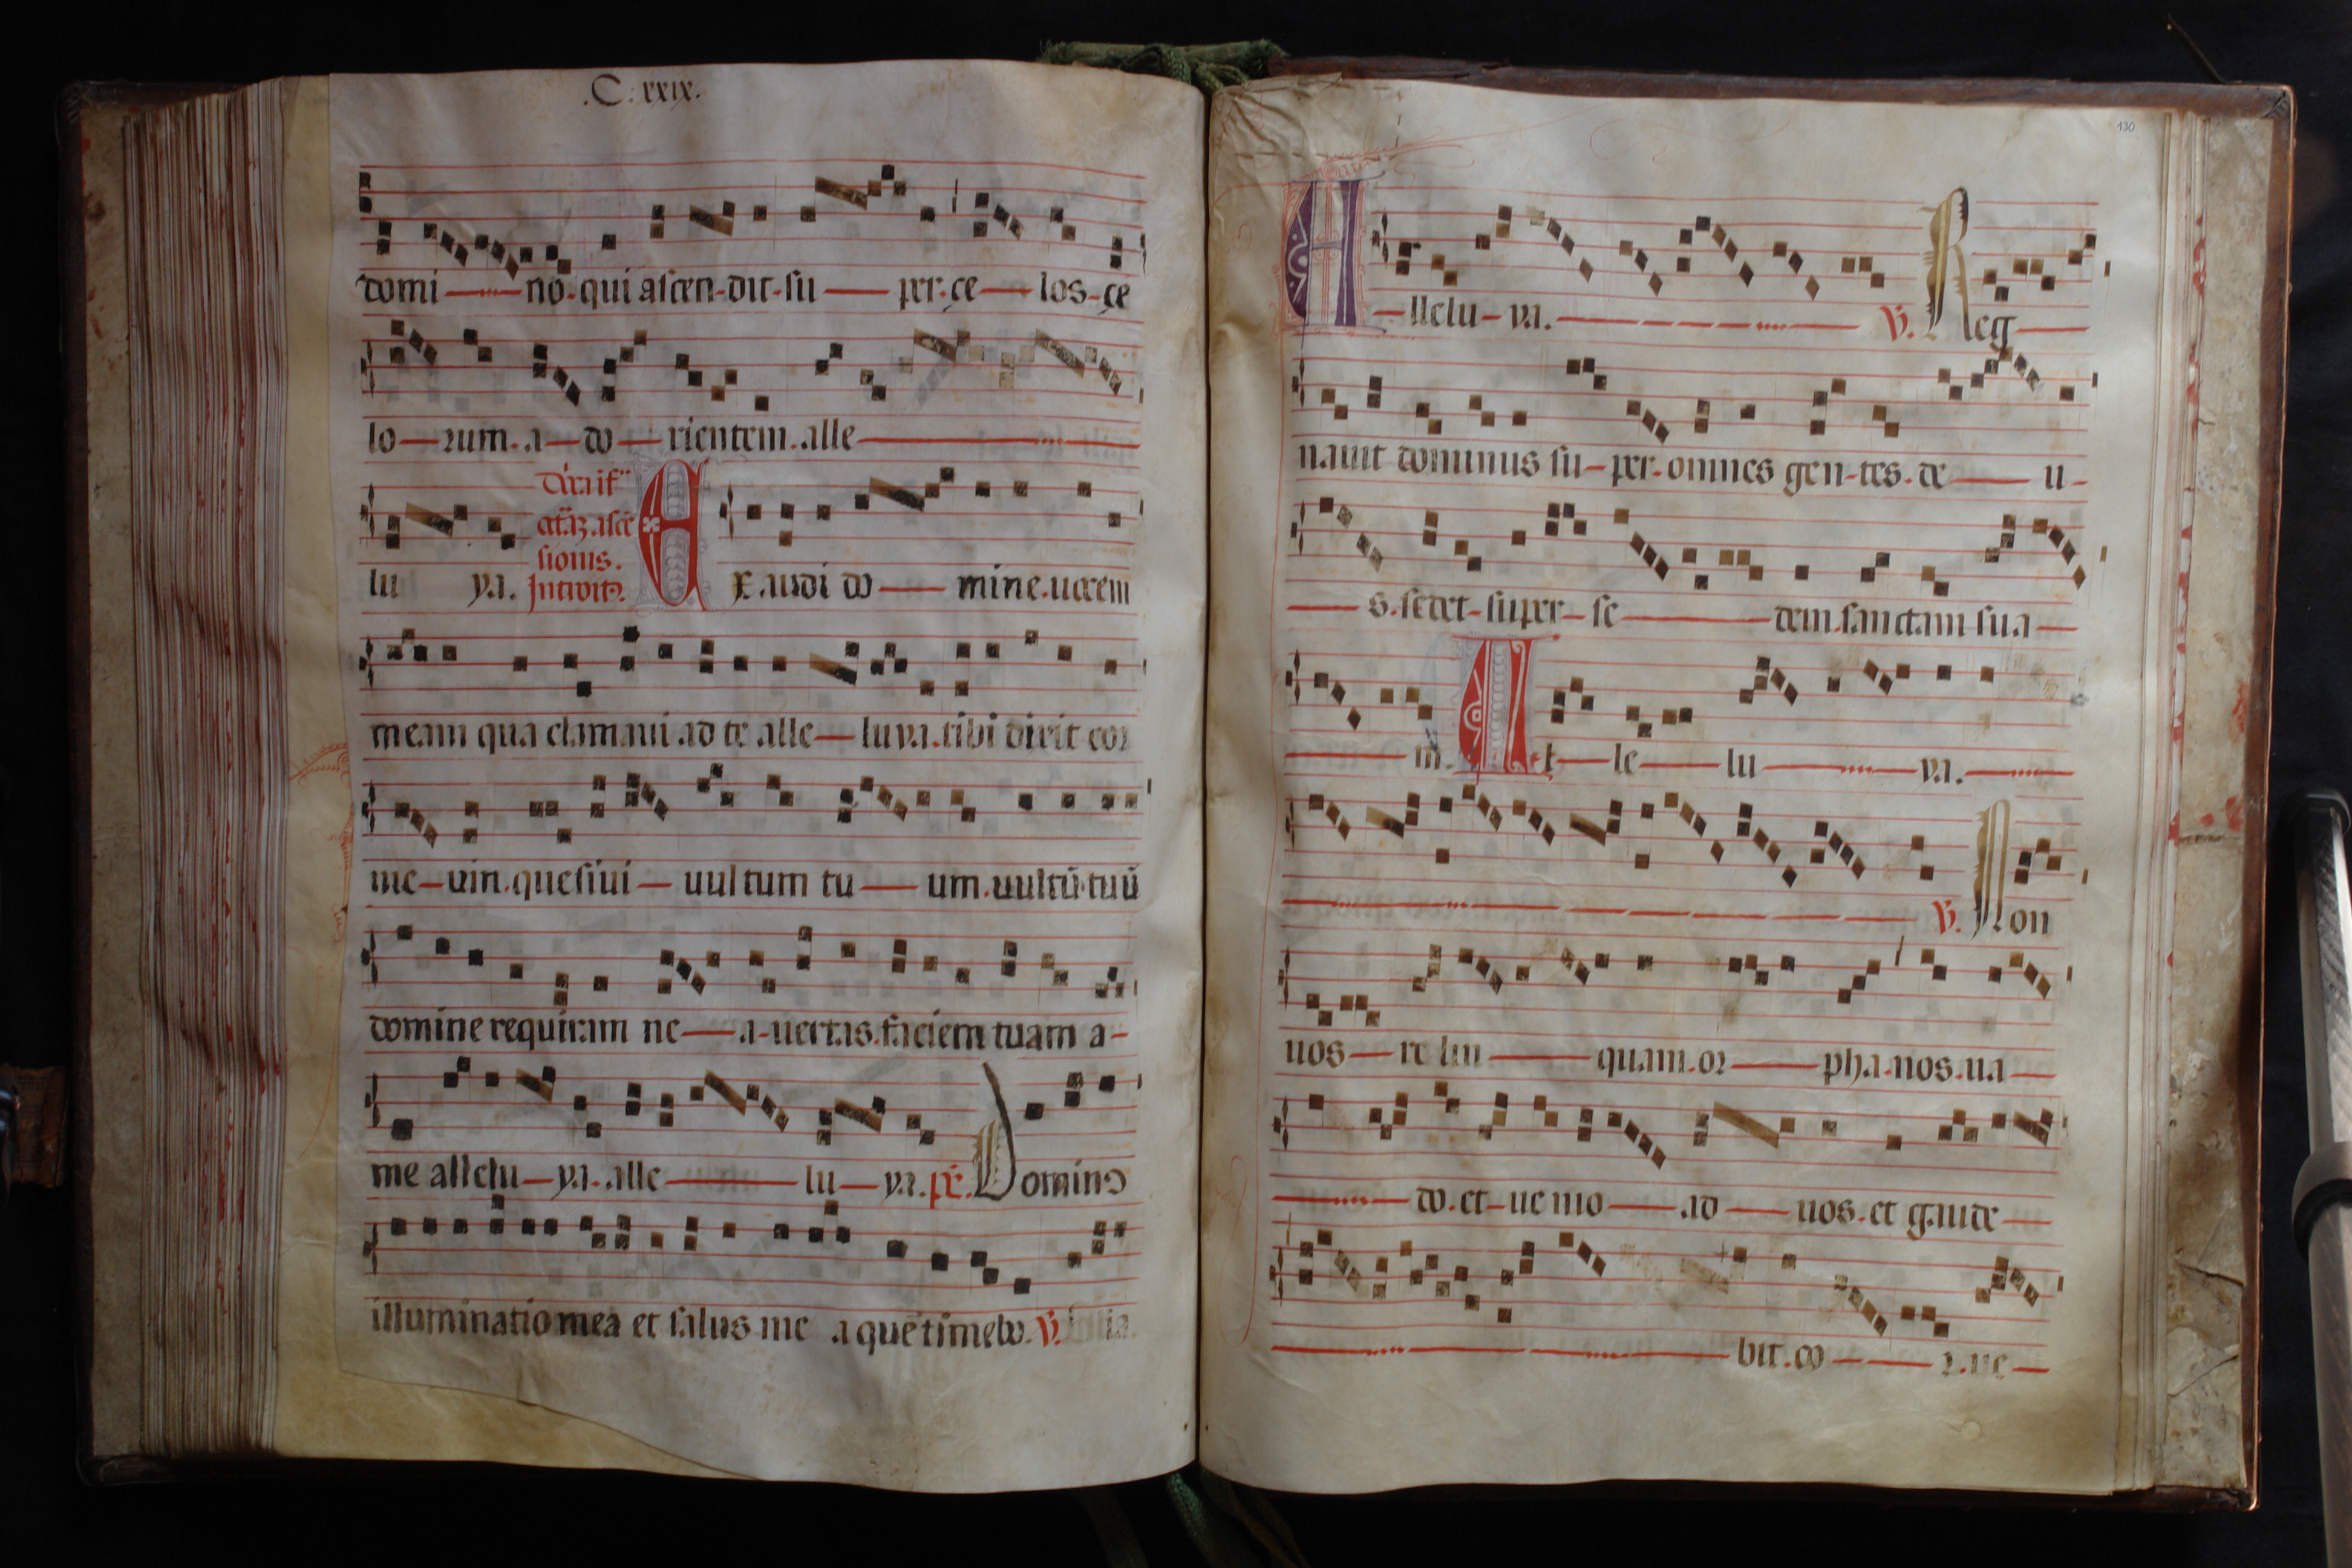 .C.xxix.
domi no qui ascen dit su per ce los ce
lo rum a do rientem alle
lu ya. Dñica if
octãȝ ascẽ
sionis.
Introitꝰ. Exaudi do mine uocem
meam qua clamaui ad te alle luya tibi dixit cor
me um quesiui uultum tu um uultũ tuũ
domine requiram ne a uertas faciem tuam a
me allelu ya alle lu ya. ps. Dominꝰ
illuminatio mea et salus me a quẽ timebo. V.
130
Allelu ya. V. Reg
nauit dominus su per omnes gen tes de u
s sedet super se dem sanctam sua
m. Al le lu ya.
V. Non
uos re lin quam or pha nos ua
do et ue nio ad uos et gaude
bit co r ue